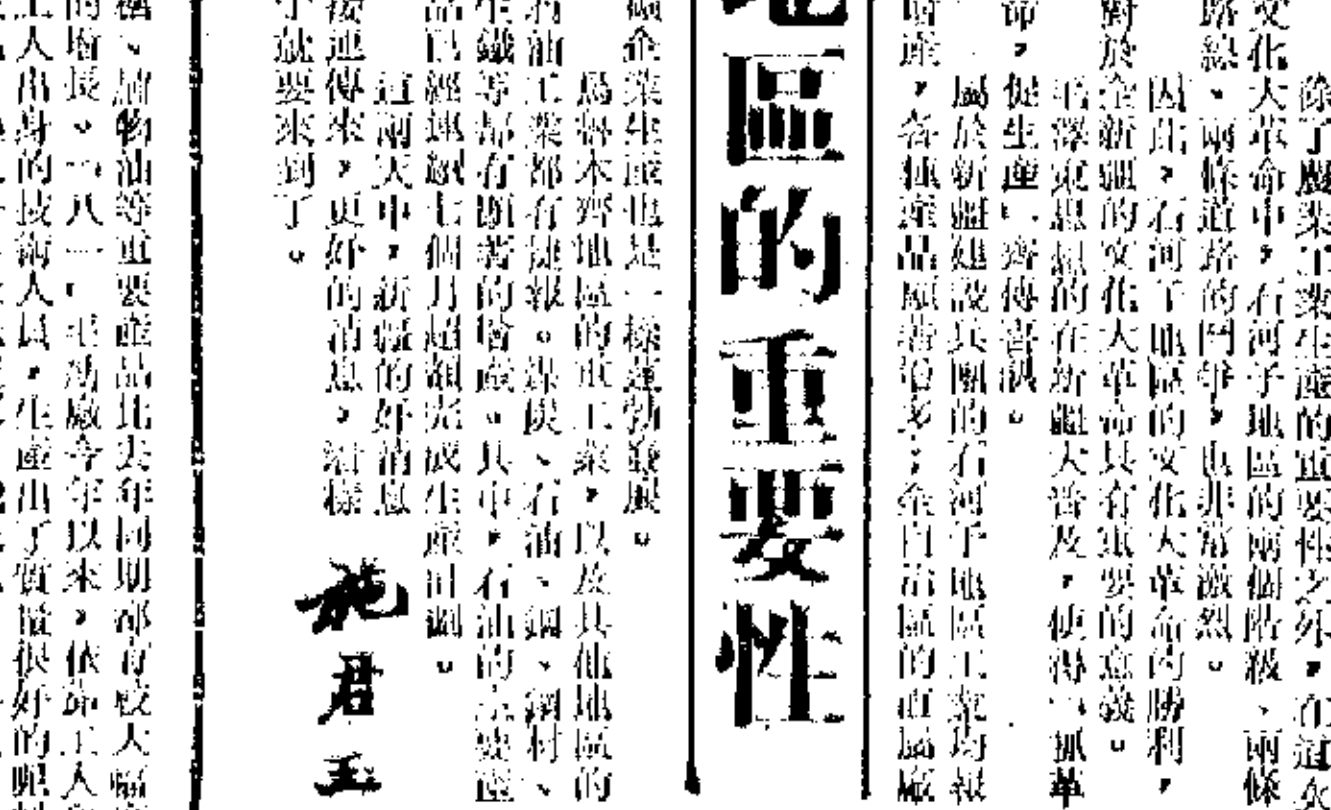 除了農業工業生產的重要性之外，在這次
文化大革命中，石河子地區的兩個階級、兩條
路線、兩條道路的鬥爭，也非常激烈。
因此，石河子地區的文化大革命的勝利，
對於全新疆的文化大革命具有重要的意義。
毛澤東思想的在新疆大普及，使得「抓革
命，促生產」一齊傳喜訊。
屬於新疆建設兵團的石河子地區工業均報
增產，各種產品顯著增多；全自治區的直屬廠
地區的重要性
礦企業生產也是一樣蓬勃發展。
烏魯木齊地區的重工業，以及其他地區的
石油工業都有捷報。煤炭、石油、鋼、鋼材、
生鐵等都有顯著的增產。其中，石油的主要產
品已經連續七個月超額完成生產計劃。
這兩天中，新疆的好消息
接連傳來，更好的消息，這樣
就要來到了。
施君玉
、植物油等重要產品比去年同期都有較大幅
的增長。「八一」毛紡廠今年以來，依靠工人
工人出身的技術人員，生產出了質量很好的呢